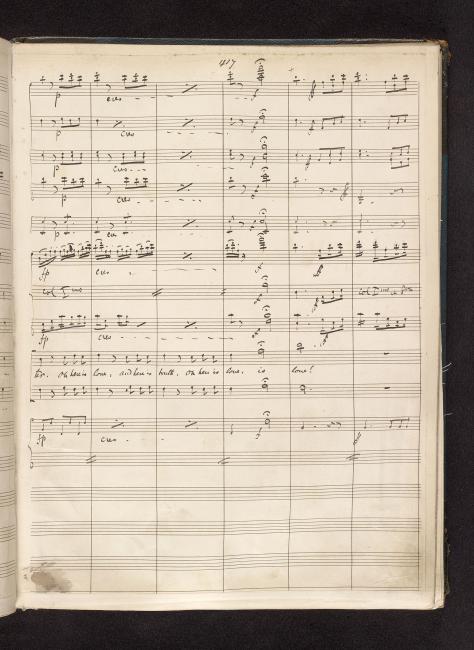 417
p cres
p cres
p cres
p cres
p cres
fp cres
col Imo col Imo
fp cres
ter. oh here is love, and here is truth, oh here is love. is love!
fp cres